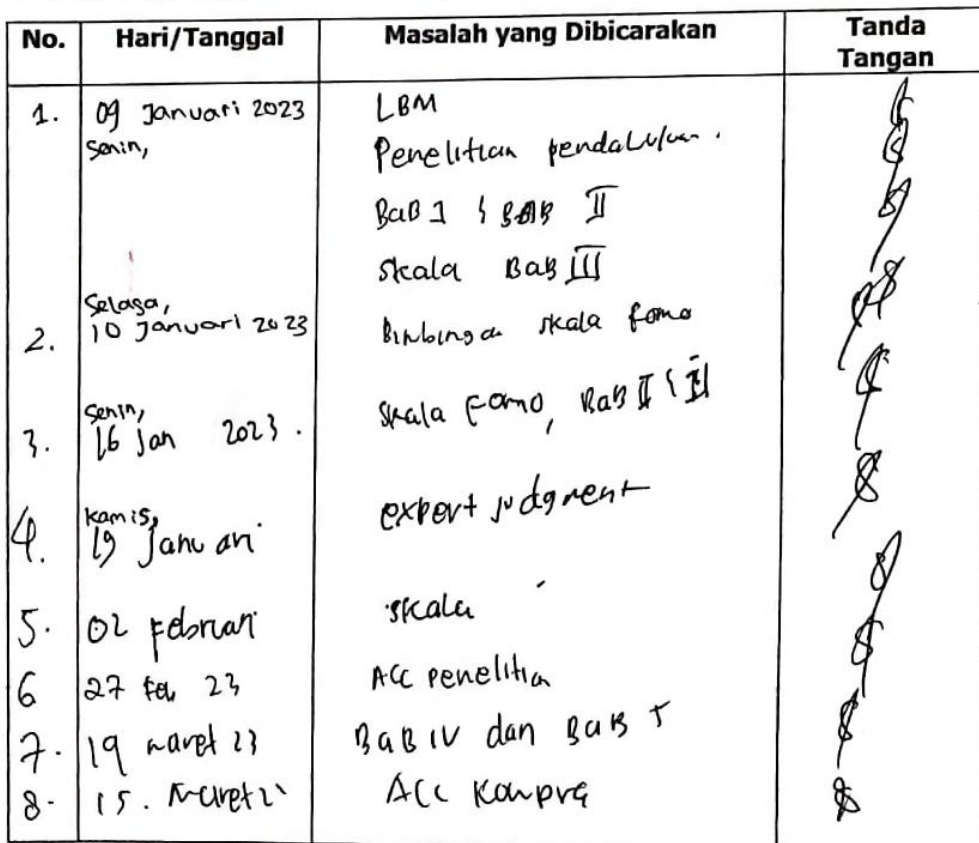 No. Hari/Tanggal Masalah yang Dibicarakan Tanda Tangan
1. 09 Januari 2023 LBM
Senin, Penelitian pendahuluan.
BaB I & BAB II
skala BaB III
Selasa,
2. 10 Januari 2023 Bimbingan skala fomo
Senin,
3. 16 Jan 2023. Skala Fomo, BaB II &
Kamis,
4. 19 Januari expert judgment
5. 02 Februari skala
6 27 Feb 23 ACC penelitian
7. 19 maret 23 BaB IV dan BaB V
8. 15. Maret ACC Kompre